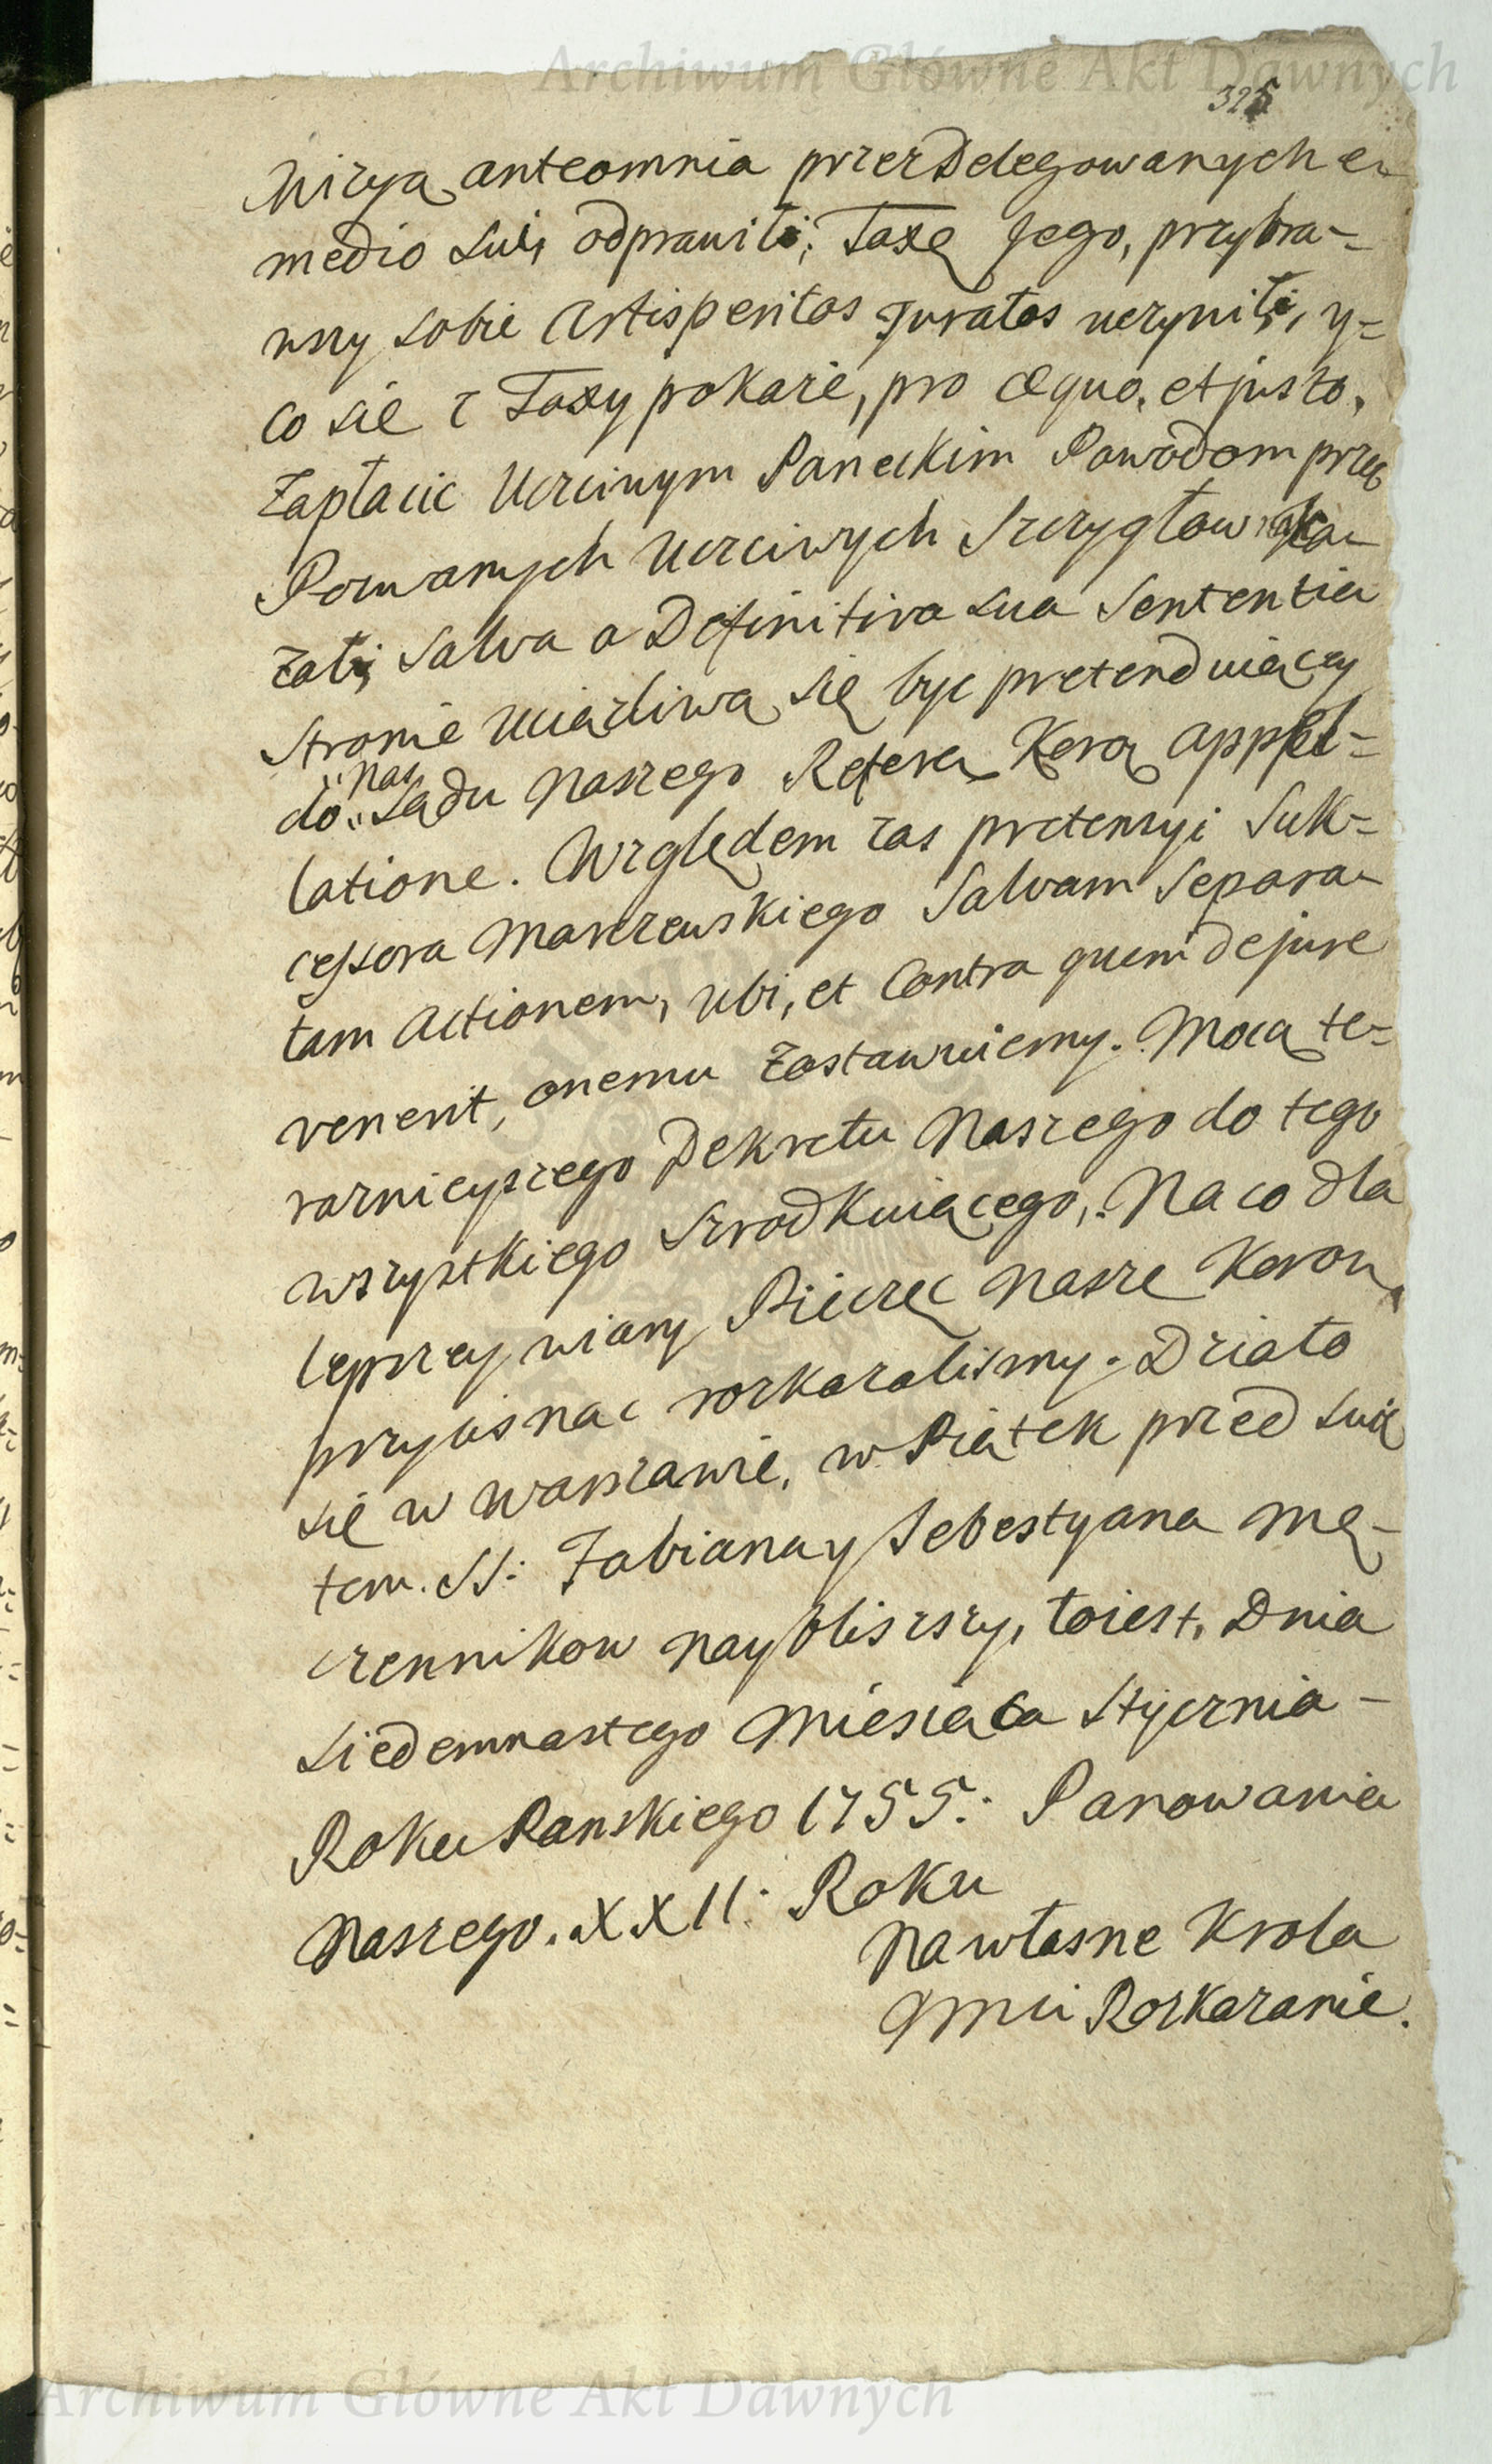 Archiwum Główne Akt Dawnych
325
Wizyą anteomnia przez Delegowanych e
medio sui, odprawili, Taxę Jego, przybra-
wszy sobie Artisperitos Juratos uczynili, y=
co się z Taxy pokaże, pro æquo, et justo,
zapłacic Uczciwym Paneckim Powodom przez
Pozwanych Uczciwych Szczygłow naka-
zali, Salva a Definitiva sua Sententia
Stronie uciązliwą się byc pretenduiącey
do nas Sądu Naszego Refera Kora Appel=
latione. Względem zas pretensyi Suk=
cessora Marszewskiego Salvam Separa-
tam Actionem, ubi, et Contra quem de jure
venerit, onemu zostawuiemy. Mocą te=
raznieyszego Dekretu Naszego do tego
wszystkiego Szrodkuiącego. Na co dla
lepszey wiary Pieczęc Nasze Koron.
przycisnac rozkazalismy. Działo
się w Warszawie, w Piątek przed Swię
tem. SS: Fabiana y Sebestyana Mę-
czennikow nayblizszy, toiest, Dnia
Siedemnastego Miesiąca Stycznia -
Roku Panskiego 1755.: Panowania
Naszego. XXII: Roku
Na własne Krola
Jmci Rozkazanie.
Archiwum Główne Akt Dawnych